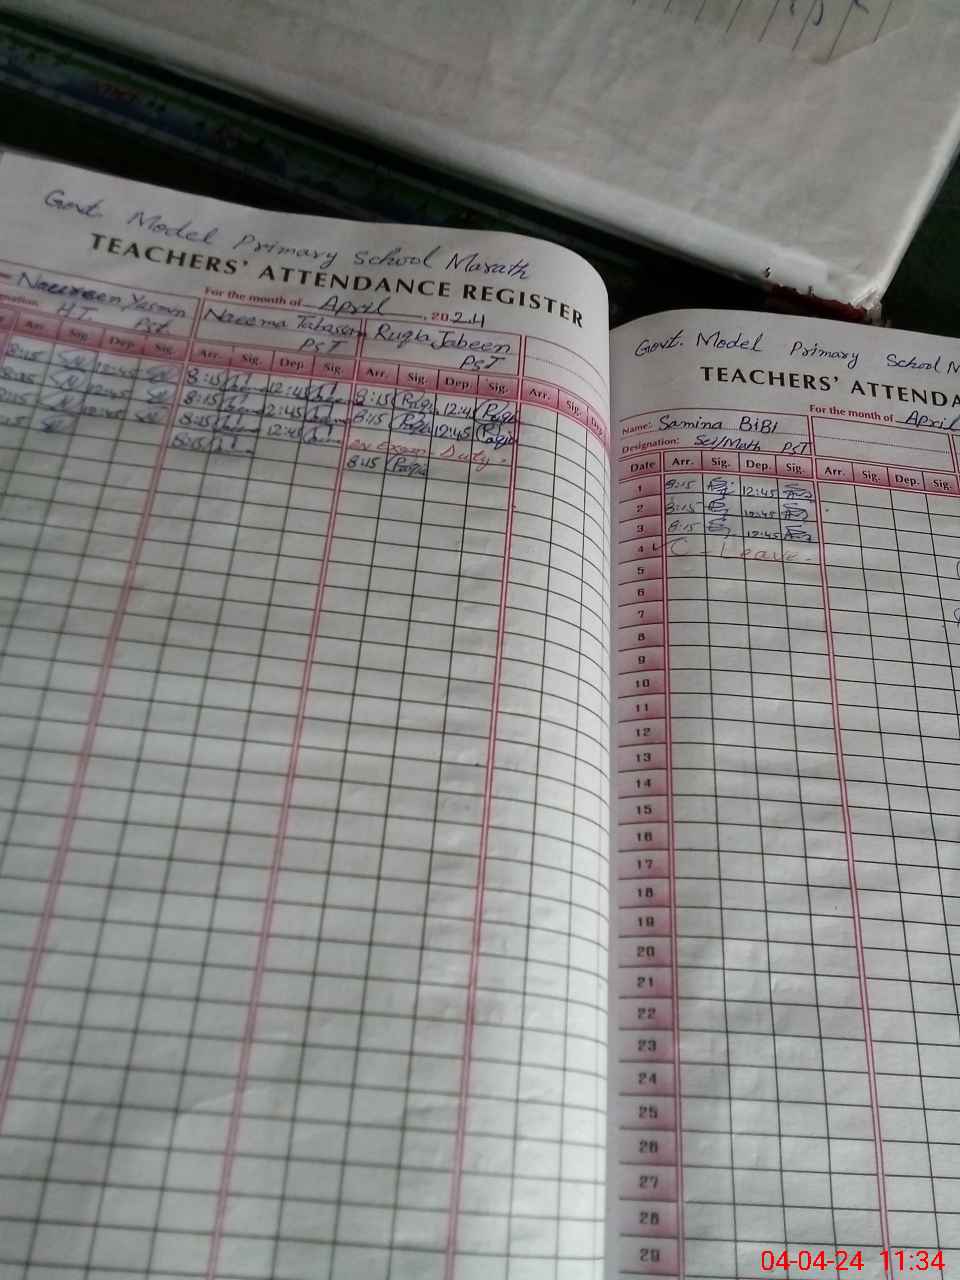 Govt. Model Primary School Marath
TEACHERS' ATTENDANCE REGISTER
For the month of April, 2024
Naureen Yasmin
H.T Pst
Naeema Tabassum
PST
Ruqia Jabeen
PST
Arr. Sig. Dep. Sig. Arr. Sig. Dep. Sig. Arr. Sig. Dep. Sig. Arr. Sig. Dep.
8:15 12:45 8:15 12:45 8:15 12:45
8:15 12:45 8:15 12:45 8:15 12:45
8:15 12:45 8:15 12:45 on Exam Duty.
8:15 8:15 8:15
Govt. Model Primary School M
TEACHERS' ATTENDA
For the month of April
Name: Samina BiBi
Designation: Sci/Math PST
Date Arr. Sig. Dep. Sig. Arr. Sig. Dep. Sig.
1 8:15 12:45
2 8:15 12:45
3 8:15 12:45
4 C-Leave-
5
6
7
8
9
10
11
12
13
14
15
16
17
18
19
20
21
22
23
24
25
26
27
28
29
04-04-24 11:34